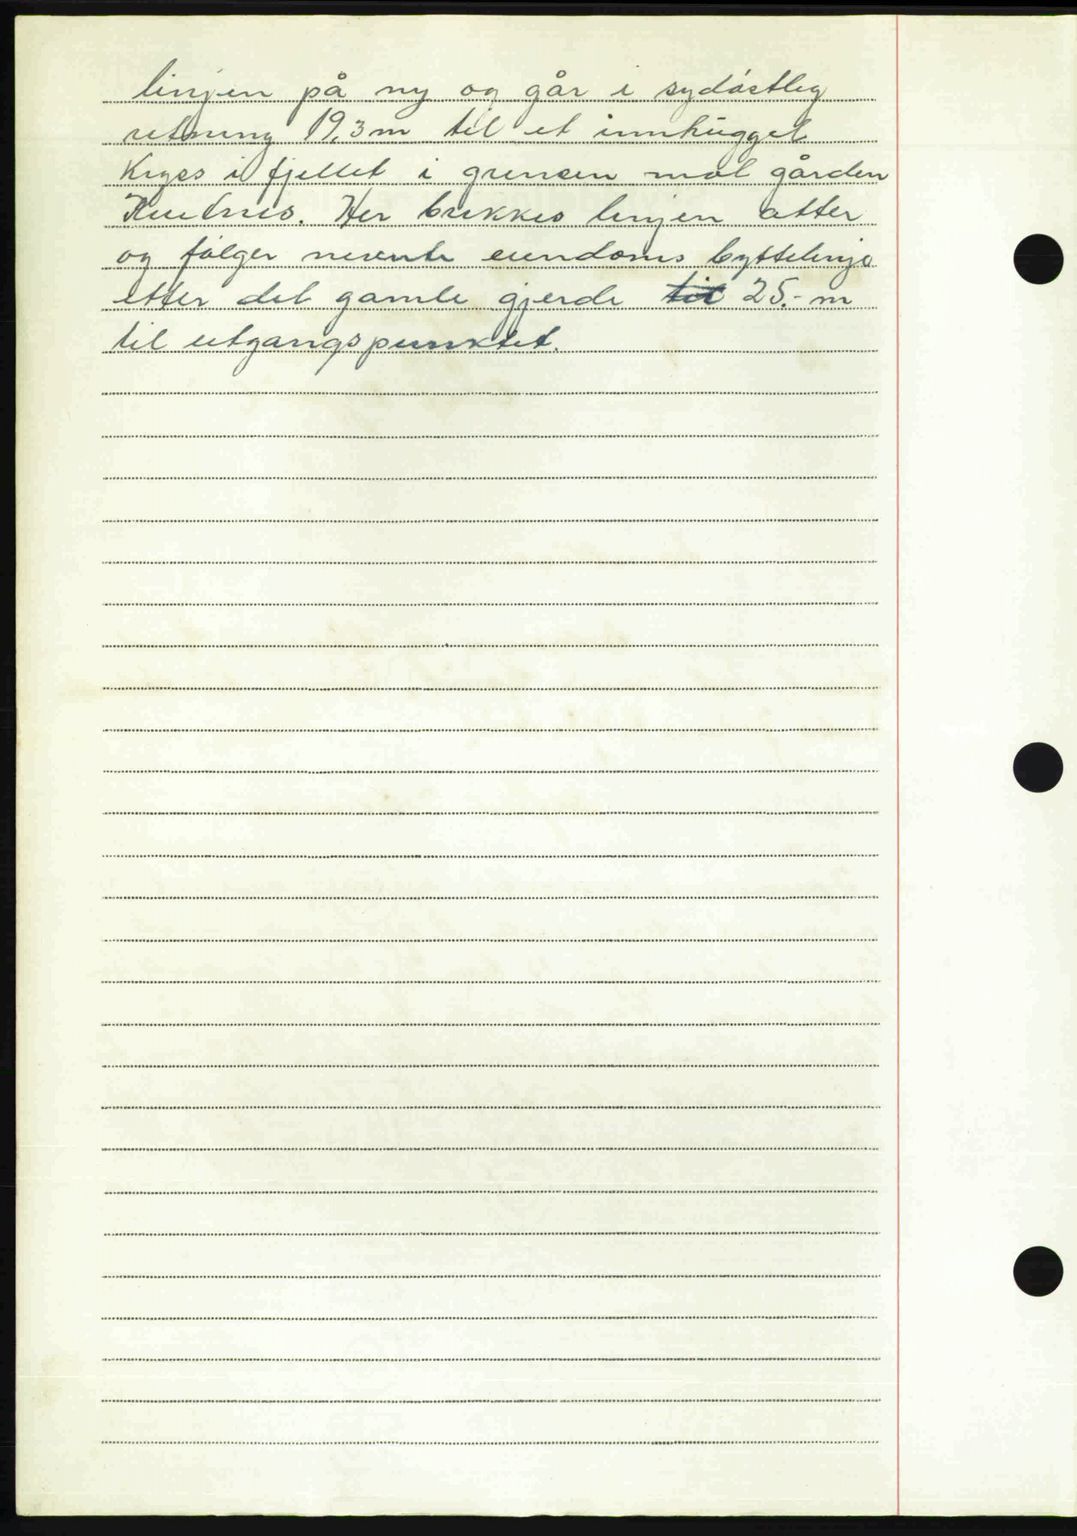 linjen på ny og går i sydøstlig
retning 19,3 m til et innhugget
Kryss i fjellet i grensen mot gården
Her brekkes linjen atter
og følger nevnte eiendoms byttelinje
etter det gamle gjerde til 25.- m
til utgangspunktet.